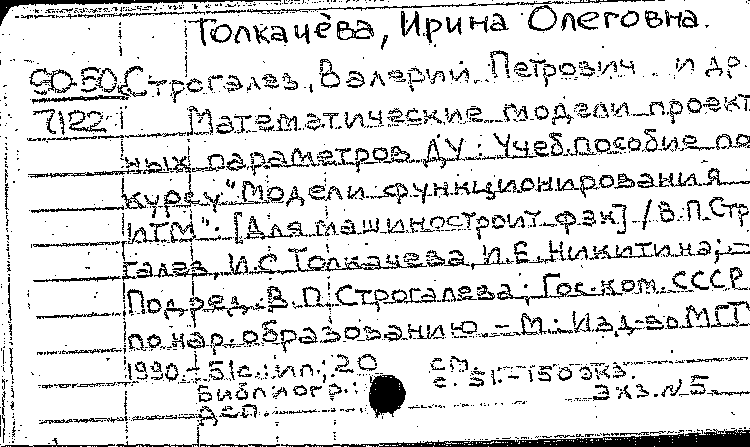 Толкачёва, Ирина Олеговна.
90-50 Строгалев, Валерий Петрович и др.
7122 Математические модели проект
ных параметров ДУ: Учеб. пособие по
курсу "Модели функционирования
ИТМ": [Для машиностроит. фак] / В.П. Стр
галев, И.С Толкачева, И.Е. Никитина; –
Под ред. В.П. Строгалева; Гос. ком. СССР
по нар. образованию. – М.: Изд-во МГТ
1990. – 51с.: ил.; 20 см.
Библиогр.: с. 51. – 150 экз.
ДСП. Экз. N 5.